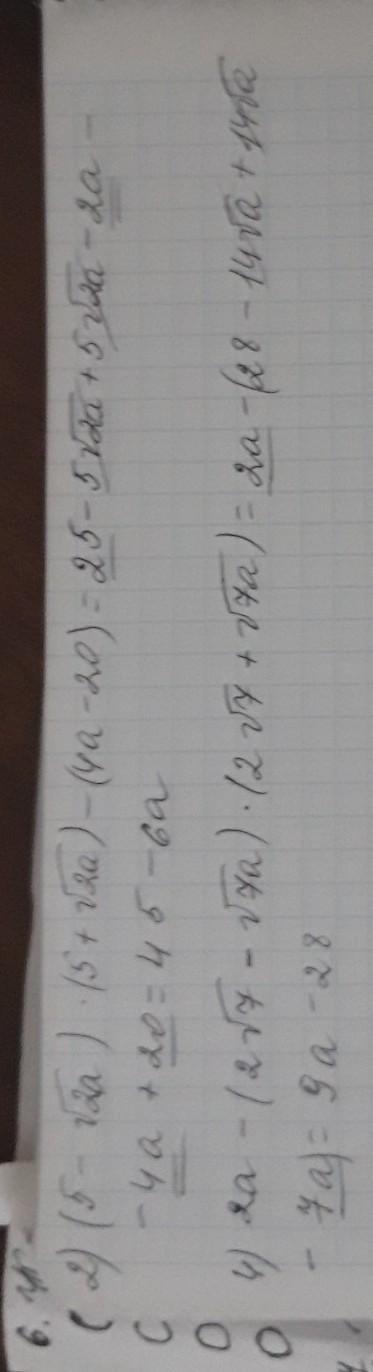 2) (5 - √2a) · (5 + √2a) - (4a - 20) = 25 - 5√2a + 5√2a - 2a -
- 4a + 20 = 45 - 6a
4) 2a - (2√7 - √7a) · (2√7 + √7a) = 2a - (28 - 14√a + 14√a
- 7a) = 9a - 28